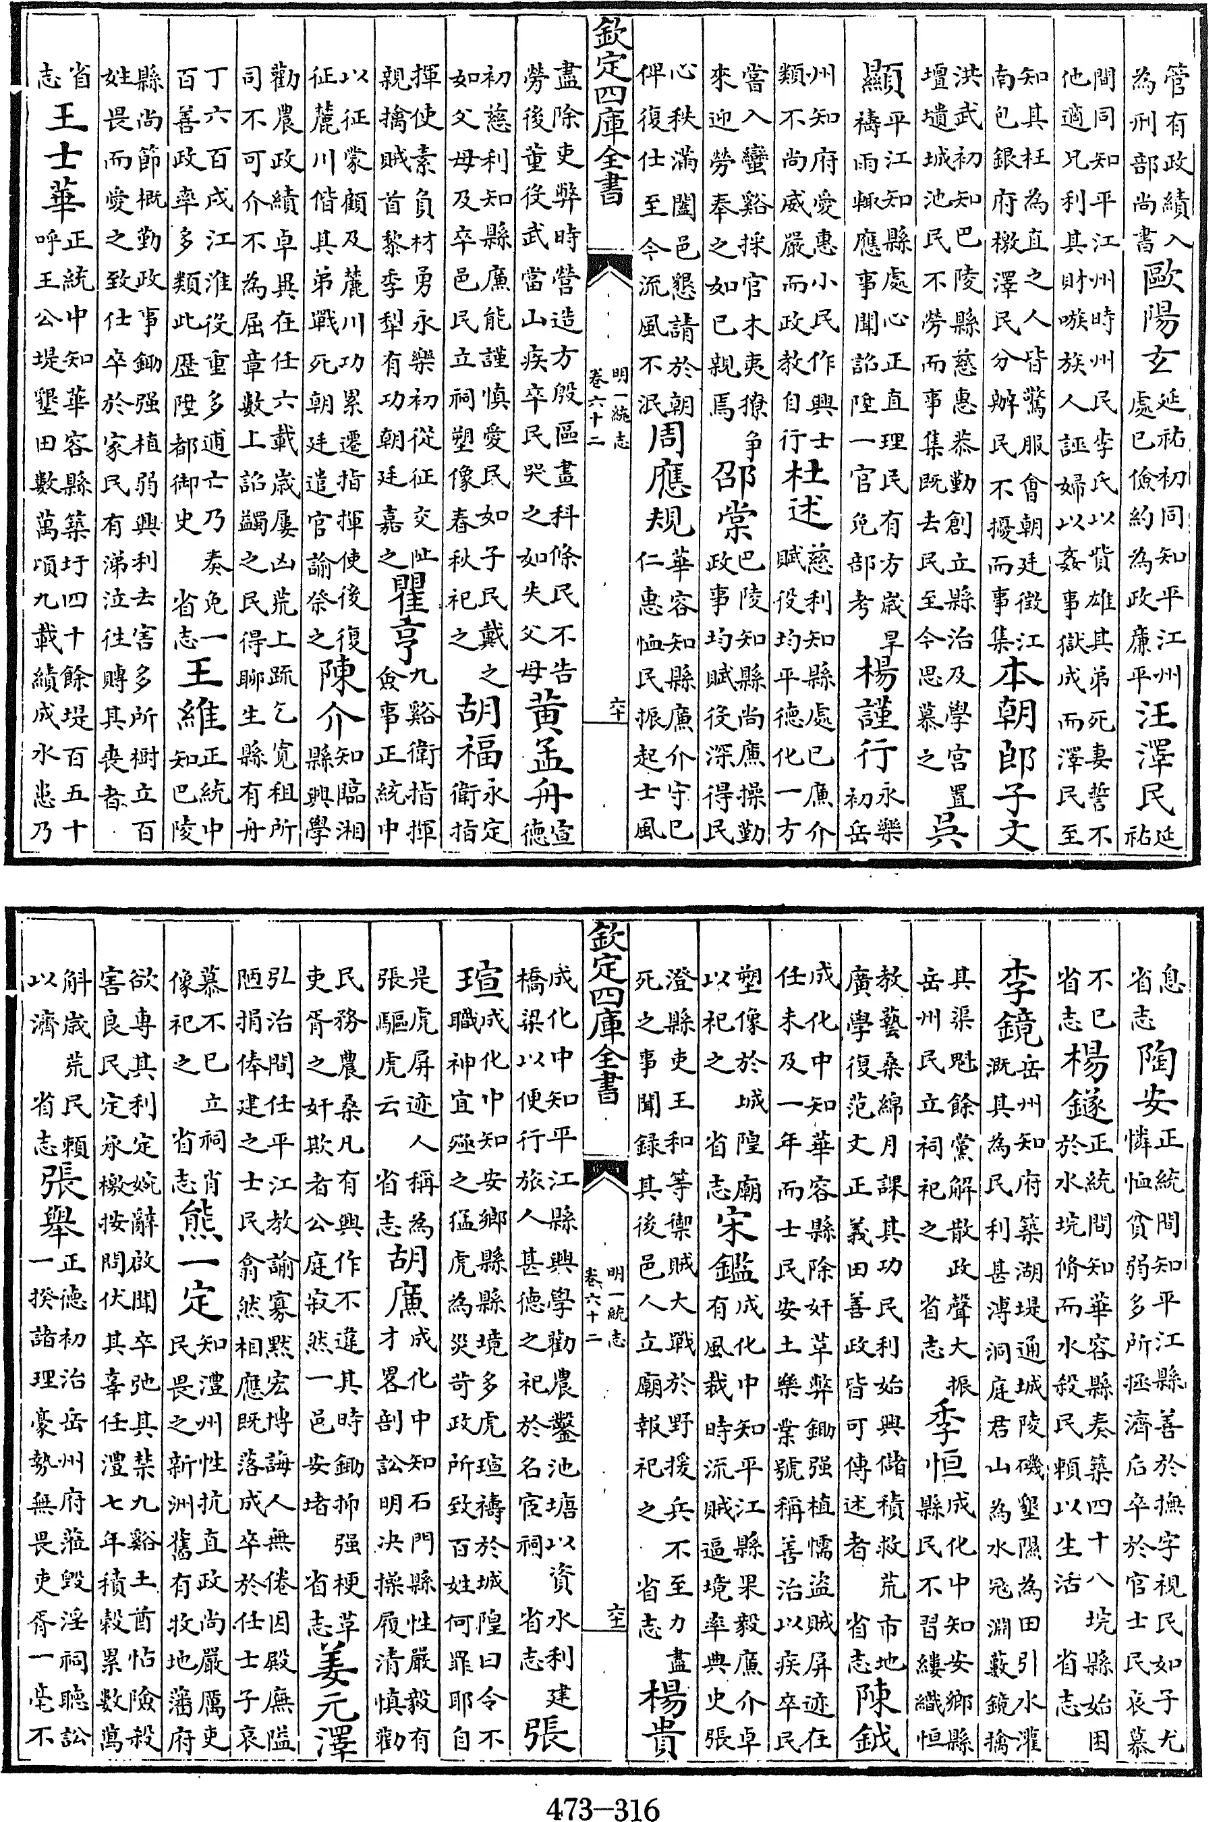 管有政績入
為刑部尚書
歐陽玄
延祐初同知平江州
處已儉約為政廉平
汪澤民
延
祐
間同知平江州時州民李氏以貲雄其弟死妻誓不
他適兄利其財嗾族人誣婦以姦事獄成而澤民至
知其枉為直之人皆驚服會朝廷徵江
南包銀府檄澤民分辦民不擾而事集
本朝郎子文
洪武初知巴陵縣慈惠恭勤創立縣治及學宮置
壇壝城池民不勞而事集既去民至今思慕之
吳
顯
平江知縣處心正直理民有方歲旱
禱雨輒應事聞詔陞一官免部考
楊謹行
永樂
初岳
州知府愛惠小民作興士
類不尚威嚴而政教自行
杜述
慈利知縣處已廉介
賦役均平德化一方
當入蠻谿採官木夷獠爭
來迎勞奉之如已親焉
邵棠
巴陵知縣尚廉操勤
政事均賦役深得民
心秩滿闔邑懇請於朝
俾復仕至今流風不泯
周應規
華容知縣廉介守已
仁惠恤民振起士風
欽定四庫全書
明一統志
卷六十二
六十
盡除吏弊時營造方殷區畫科條民不告
勞後董役武當山疾卒民哭之如失父母
黃孟舟
宣
德
初慈利知縣廉能謹慎愛民如子民戴之
如父母及卒邑民立祠塑像春秋祀之
胡福
永定
衛指
揮使素負材勇永樂初從征交阯
親擒賊首黎季犁有功朝廷嘉之
瞿亨
九谿衛指揮
僉事正統中
以征蒙顧及麓川功累遷指揮使後復
征麓川偕其弟戰死朝廷遣官諭祭之
陳介
知臨湘
縣興學
勸農政績卓異在任六載歲屢凶荒上疏乞寬租所
司不可介不為屈章數上詔蠲之民得聊生縣有舟
丁六百戍江淮役重多逋亡乃奏免一
百善政率多類此歷陞都御史 省志
王維
正統中
知巴陵
縣尚節概勤政事鋤强植弱興利去害多所樹立百
姓畏而愛之致仕卒於家民有涕泣往賻其喪者
省
志
王士華
正統中知華容縣築圩四十餘堤百五十
呼王公堤墾田數萬頃九載績成水患乃
息
省志
陶安
正統間知平江縣善於撫字視民如子尤
憐恤貧弱多所拯濟后卒於官士民哀慕
不已
省志
楊鐩
正統間知華容縣奏築四十八垸縣始困
於水垸脩而水殺民賴以生活 省志
李鏡
岳州知府築湖堤通城陵磯墾隰為田引水灌
溉其為民利甚溥洞庭君山為水寇淵藪鏡擒
其渠魁餘黨解散政聲大振
岳州民立祠祀之 省志
季恒
成化中知安鄉縣
縣民不習縷織恒
教藝桑綿月課其功民利始興儲積救荒市地
廣學復范文正義田善政皆可傳述者 省志
陳鉞
成化中知華容縣除奸革弊鋤强植懦盜賊屏迹在
任未及一年而士民安土樂業號稱善治以疾卒民
塑像於城隍廟
以祀之 省志
宋鑑
成化中知平江縣果毅廉介卓
有風裁時流賊逼境率典史張
澄縣吏王和等禦賊大戰於野援兵不至力盡
死之事聞錄其後邑人立廟報祀之 省志
楊貴
欽定四庫全書
明一統志
卷六十二
六十一
成化中知平江縣興學勸農鑿池塘以資水利建
橋梁以便行旅人甚德之祀於名宦祠 省志
張
瑄
成化中知安鄉縣縣境多虎瑄禱於城隍曰令不
職神宜殛之猛虎為災苛政所致百姓何罪耶自
是虎屏迹人稱為
張驅虎云 省志
胡廉
成化中知石門縣性嚴毅有
才畧剖訟明决操履清慎勸
民務農桑凡有興作不違其時鋤抑强梗革
吏胥之奸欺者公庭寂然一邑安堵 省志
姜元澤
弘治間任平江教諭寡默宏博誨人無倦因殿廡隘
陋捐俸建之士民翕然相應既落成卒於任士子哀
慕不已立祠肖
像祀之 省志
熊一定
知澧州性抗直政尚嚴厲吏
民畏之新洲舊有牧地藩府
欲專其利定婉辭啟聞卒弛其禁九谿土酋怙險殺
害良民定承檄按問伏其辜任澧七年積穀累數萬
斛歲荒民賴
以濟 省志
張舉
正德初治岳州府蒞毀淫祠聽訟
一揆諧理豪勢無畏吏胥一毫不
473-316